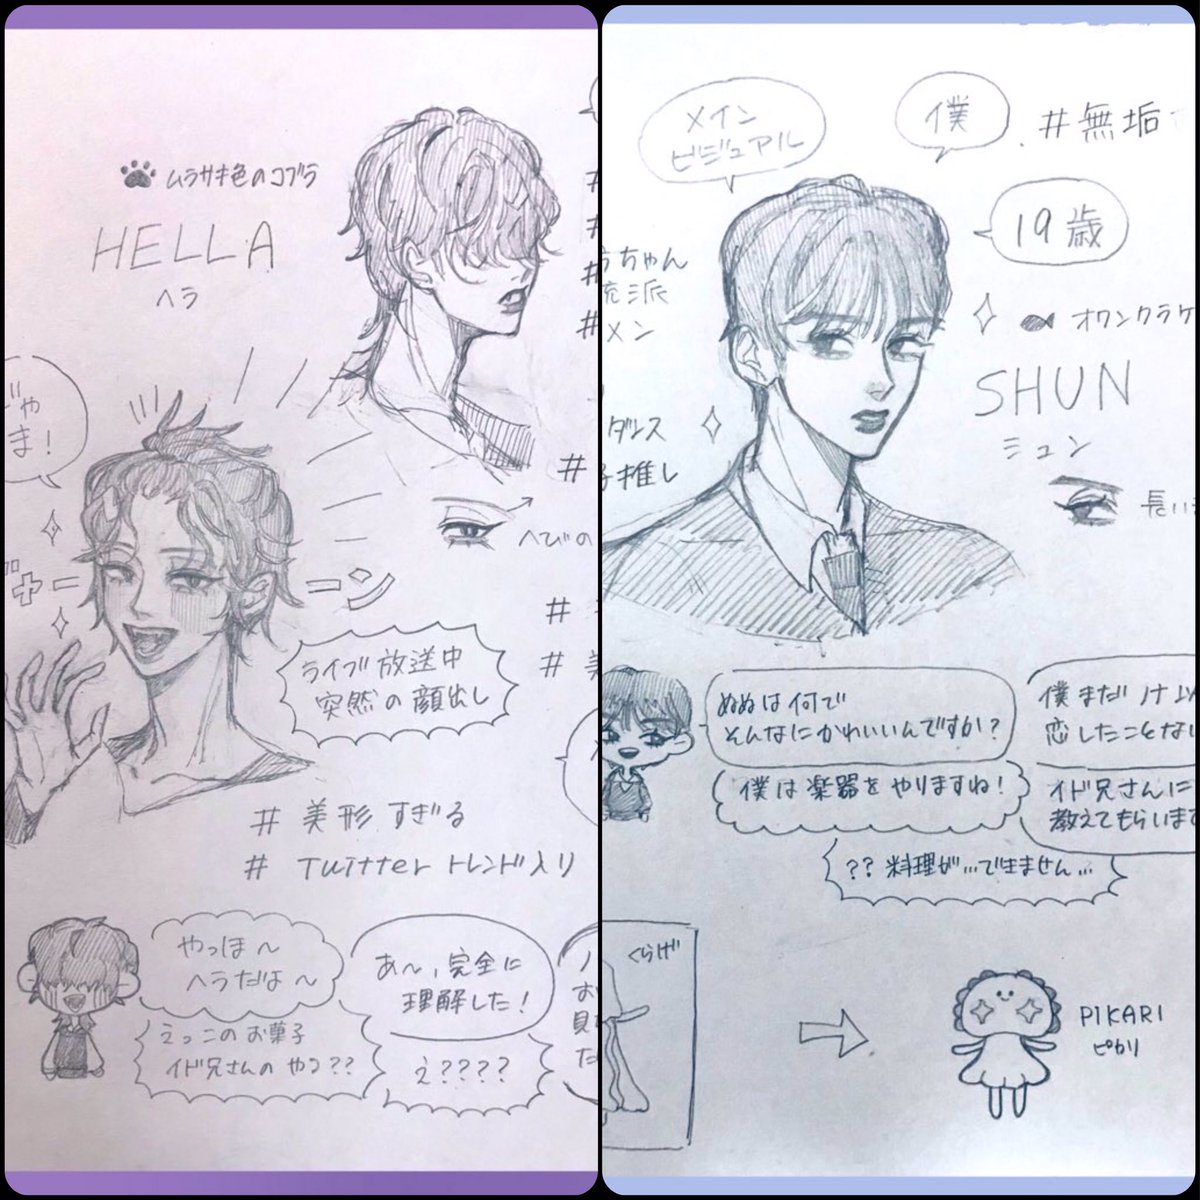 ムラサキ色のコブラ
HELLA
ヘラ
じゃ
ま!
へびの
ライブ放送中
突然の顔出し
# 美形すぎる
# Twitterトレンド入り
やっほ〜
ヘラだよ〜
えっこのお菓子
イド兄さんのやつ??
あ〜、完全に
理解した!
え????
メイン
ビジュアル
僕
#無垢
19歳
ちゃん
メン
オワンクラゲ
SHUN
シュン
ダンス
推し
長い
ぬぬは何で
そんなにかわいいんですか?
僕は楽器をやりますね!
僕まだ
恋したことな
イド兄さんに
教えてもらいます
??料理が…できません…
くらげ
PIKARI
ピカリ